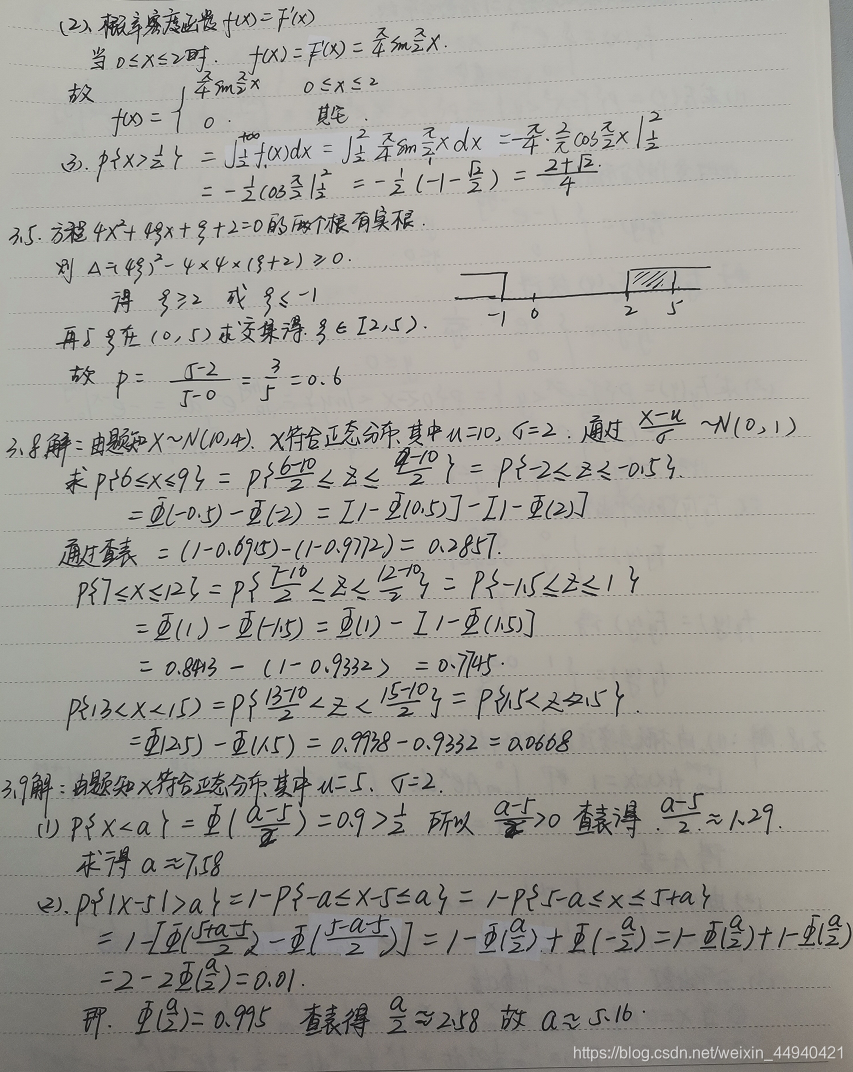 (2). 概率密度函数 f(x) = F'(x)
当 0≤x≤2时. f(x) = F'(x) = π/4 sin π/2 x.
故 f(x) = { π/4 sin π/2 x 0≤x≤2
0. 其它.
(3). P{x>1/2} = ∫_{1/2}^{+∞} f(x)dx = ∫_{1/2}^{2} π/4 sin π/2 x dx = -π/4 · 2/π cos π/2 x |_{1/2}^{2}
= -1/2 cos π/2 |_{1/2}^{2} = -1/2 (-1 - √2/2) = (2+√2)/4.
3.5. 方程 4x²+4ξx+ξ+2=0 的两个根有实根.
则 Δ=(4ξ)²-4×4×(ξ+2) ≥0.
得 ξ≥2 或 ξ≤-1
-1 0 2 5
再与ξ在 (0,5) 求交集得 ξ∈[2,5).
故 P = (5-2)/(5-0) = 3/5 = 0.6
3.8解: 由题知X~N(10,4). X符合正态分布. 其中 u=10, σ=2. 通过 (x-u)/σ ~N(0,1)
求 P{6≤x≤9} = P{(6-10)/2 ≤ z ≤ (9-10)/2} = P{-2≤z≤-0.5}.
= Φ(-0.5) - Φ(2) = [1-Φ(0.5)] - [1-Φ(2)]
通过查表 = (1-0.6915)-(1-0.9772) = 0.2857.
P{7≤x≤12} = P{(7-10)/2 ≤ z ≤ (12-10)/2} = P{-1.5≤z≤1}
= Φ(1) - Φ(-1.5) = Φ(1) - [1-Φ(1.5)]
= 0.8413 - (1-0.9332) = 0.7745.
P{13<x<15} = P{(13-10)/2 < z < (15-10)/2} = P{1.5<z<2.5}.
= Φ(2.5) - Φ(1.5) = 0.9938-0.9332 = 0.0668
3.9解: 由题知X符合正态分布. 其中 u=5. σ=2.
(1) P{x<a} = Φ((a-5)/2) = 0.9 > 1/2 所以 (a-5)/2 >0 查表得 (a-5)/2 ≈1.29.
求得 a≈7.58
(2). P{|x-5|>a} = 1-P{-a≤x-5≤a} = 1-P{5-a≤x≤5+a}
= 1-[Φ((5+a-5)/2) - Φ((5-a-5)/2)] = 1-Φ(a/2) + Φ(-a/2) = 1-Φ(a/2) + 1-Φ(a/2)
= 2-2Φ(a/2) = 0.01.
即. Φ(a/2) = 0.995 查表得 a/2 ≈2.58 故 a≈5.16.
https://blog.csdn.net/weixin_44940421